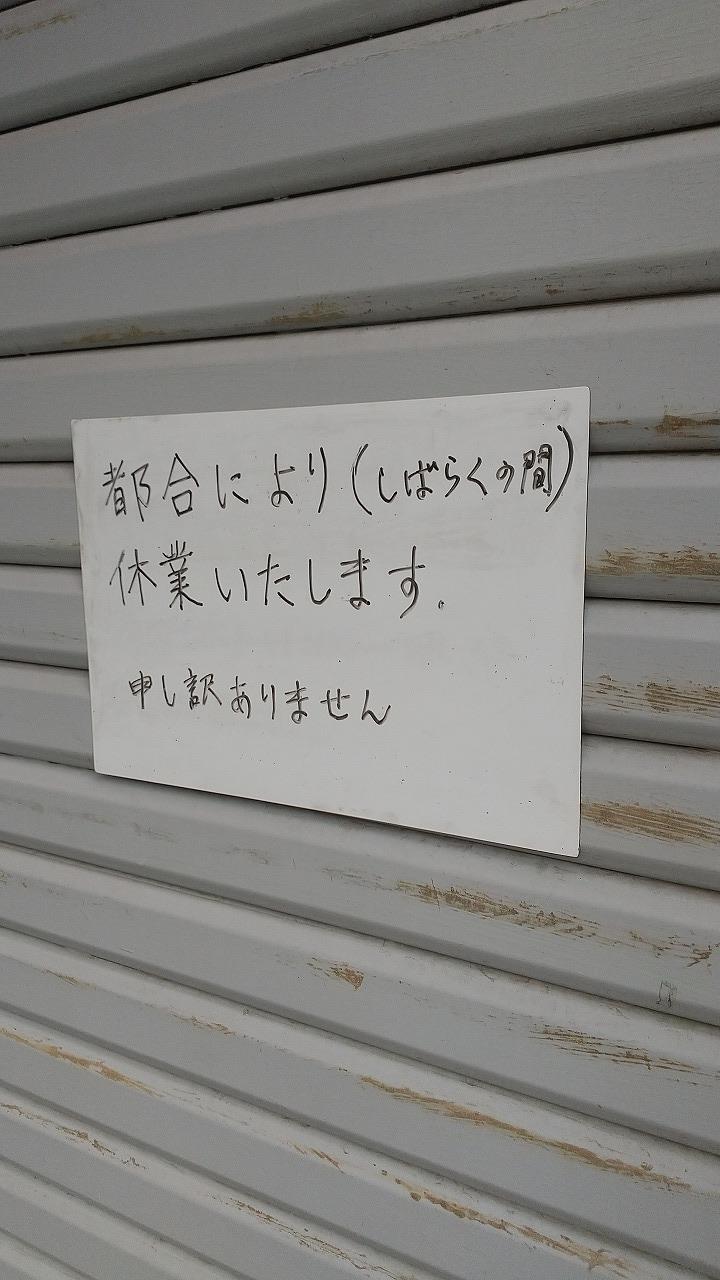 都合により(しばらくの間)
休業いたします.
申し訳ありません